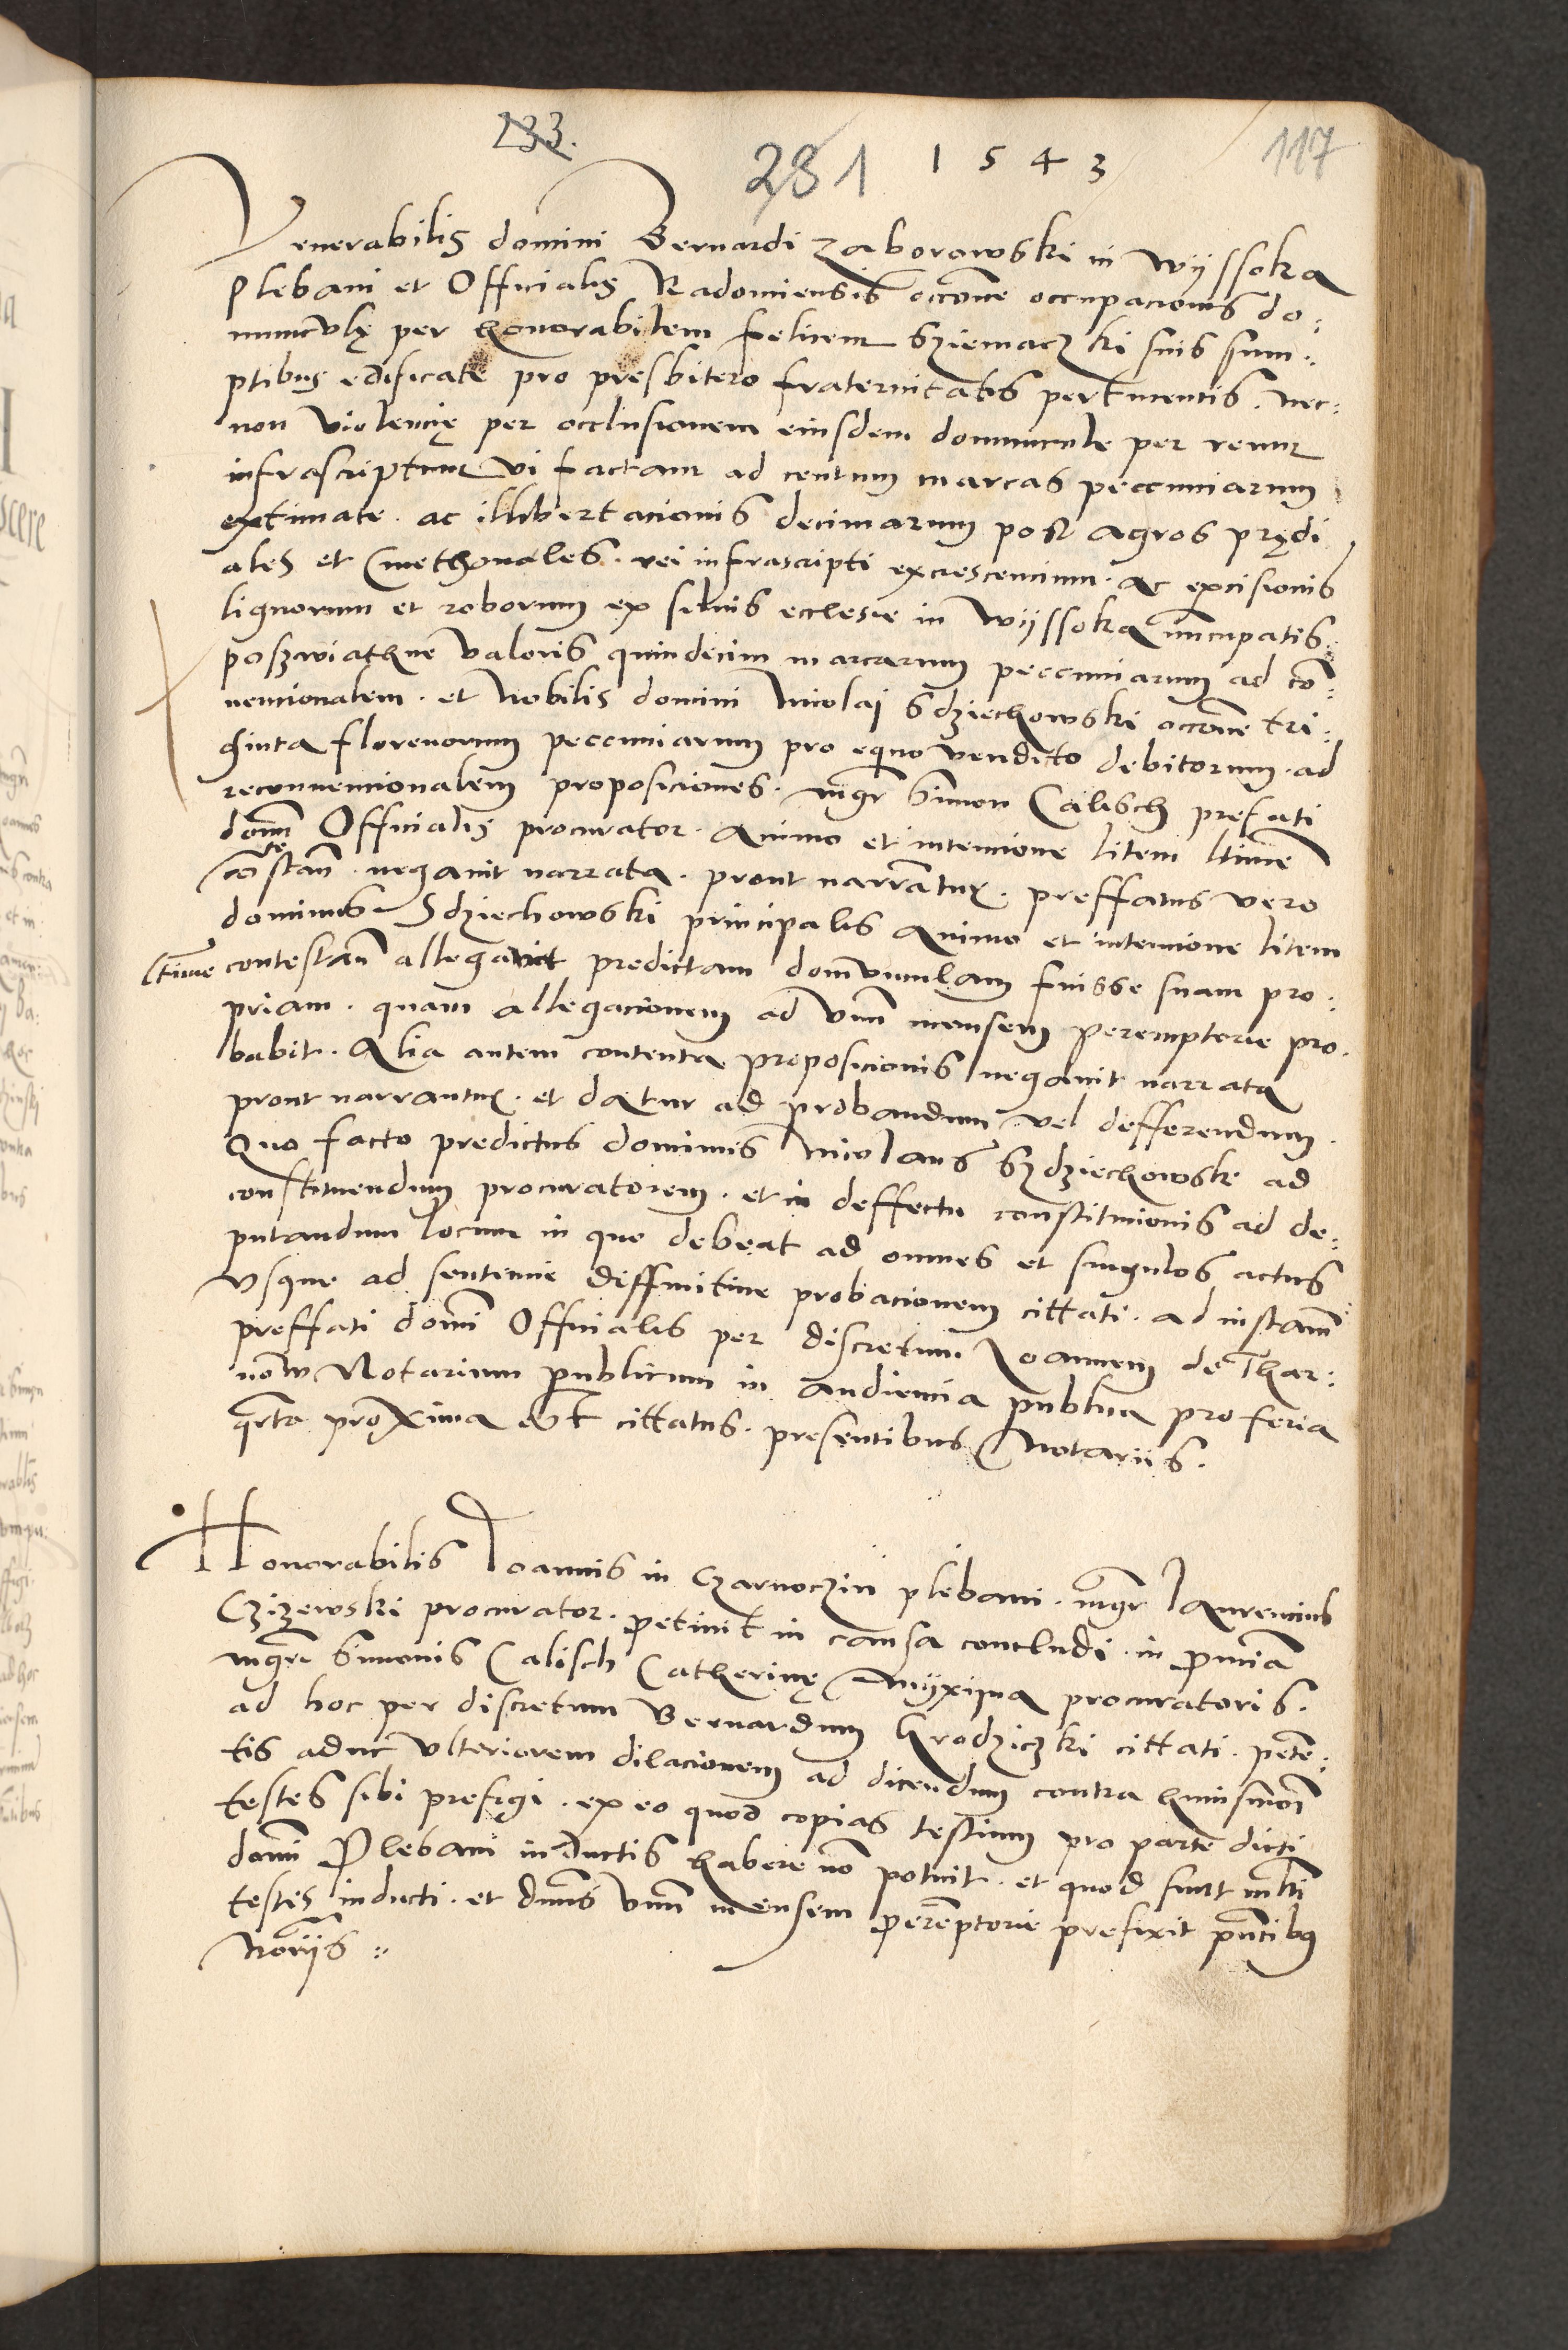 233.
281 1543 117
Venerabilis domini Bernardi Zaborowski in Wyssoka
Plebani et Officialis Radomiensis occōne occupacionis do:
munculę per honorabilem felicem Sziemaczki suis sum:
ptibus edificate pro presbitero fraternitatis pertinentis. nec:
non violencię per occlusionem eiusdem domuncule per reum
infrascriptum vi factam ad centum marcas peccuniarum
extimate. ac illibertacionis decimarum post agros prędi
ales et Cmethonales. rei infrascripti excrescencium. ac excisionis
lignorum et roborum ex siluis ecclesie in Wyssoka nuncupatis
poszwiathne valoris quindecim marcarum peccuniarum ad cō:
uencionalem. et Nobilis domini Nicolaj Sdziechowski occōne tri:
ginta florenorum peccuniarum pro equo vendito debitorum. ad
reconuencionalem proposiciones. mgr̄ Simon Calisch prefati
domī Officialis procurator. animo et intencione litem ltīme
cōtestań. negauit narrata. prout narrantur. preffatus vero
dominus Sdziechowski principalis animo et intencione litem
ltīme contestań allegauit predictam domunculam fuisse suam pro:
priam. quam allegacionem ad vnū mensem peremptorie pro.
babit. Alia autem contenta proposicionis negauit narrata
prout narrantur. et datur ad probandum vel defferendum.
Quo facto predictus dominus Nicolaus Szdziechowski ad
constituendum procuratorem. et in deffectu constitucionis ad de:
putandum locum in quo debeat ad omnes et singulos actus
vsque ad sentencie diffinitiue probacionem cittati. ad instanā
preffati domī Officialis per discretum Joannem de Thar:
now Notarium publicum in audiencia publica pro feria
qrta proxima est cittatus. presentibus Notariis.
Honorabilis Joannis in Czarnoczin plebani. mgr̄ Laurencius
Czizewski procurator. petiuit in causa concludi. in pn̄ciā
mgrī Simonis Calisch Catherinę procuratoris.
ad hoc per discretum Bernardum Grodziczki cittati. petē:
tis aduc vlteriorem dilacionem ad dicendum contra huiusmōi
testes sibi prefigi. ex eo quod copias testium pro parte dicti
domī Plebani inductis habere nō potuit. et quod sunt mlti
testes inducti. et dn̄us vnū mensem peremptorie prefixit pn̄tibus
Norijs